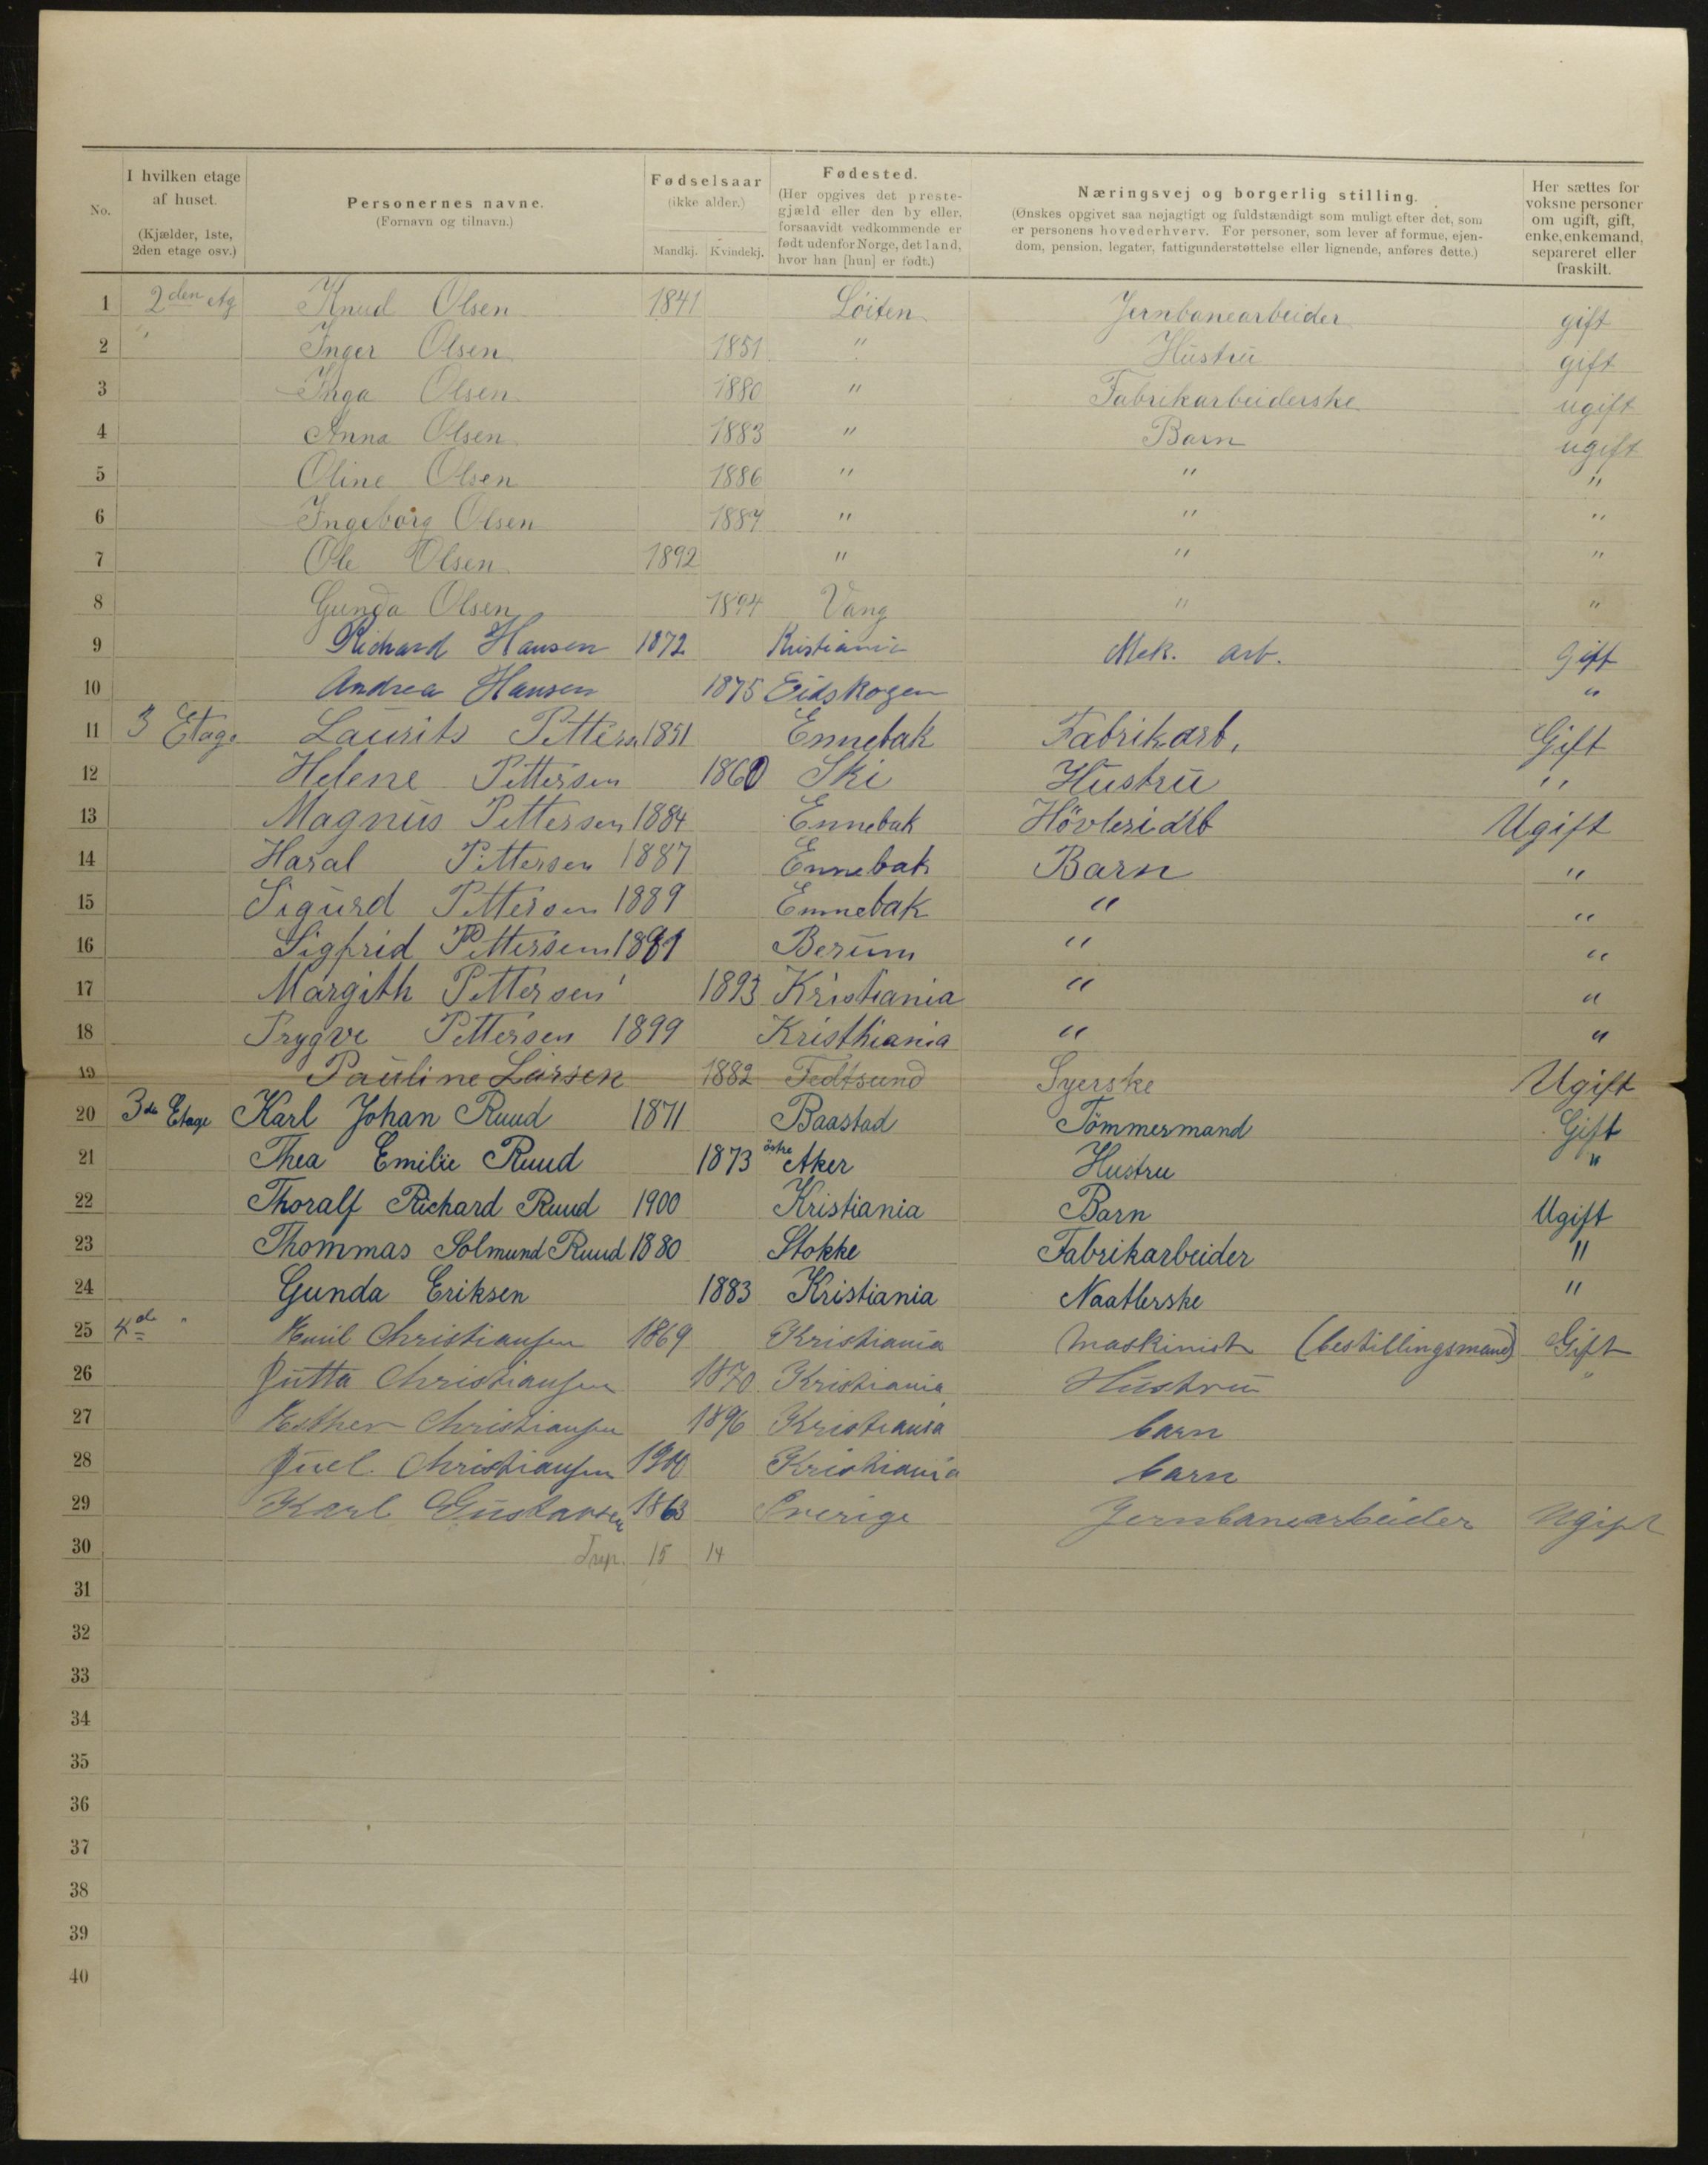 No.
I hvilken etage af huset. (Kjælder, 1ste, 2den etage osv.)
Personernes navne. (Fornavn og tilnavn.)
Fødselsaar (ikke alder.) Mandkj. Kvindekj.
Fødested. (Her opgives det prestegjæld eller den by eller, forsaavidt vedkommende er født udenfor Norge, det land, hvor han [hun] er født.)
Næringsvej og borgerlig stilling. (Ønskes opgivet saa nøjagtigt og fuldstændigt som muligt efter det, som er personens hovederhverv. For personer, som lever af formue, ejendom, pension, legater, fattigunderstøttelse eller lignende, anføres dette.)
Her sættes for voksne personer om ugift, gift, enke, enkemand, separeret eller fraskilt.
1 2den etg Knud Olsen 1841 Löiten Jernbanearbeider gift
2 " Inger Olsen 1851 " Hustru gift
3 Inga Olsen 1880 " Fabrikarbeiderske ugift
4 Anna Olsen 1883 " Barn ugift
5 Oline Olsen 1886 " " "
6 Ingeborg Olsen 1887 " " "
7 Ole Olsen 1892 " " "
8 Gunda Olsen 1894 Vang " "
9 Richard Hansen 1872 Kristiania Mek. arb. Gift
10 Andrea Hansen 1875 Eidskogen "
11 3 Etage Laurits Pettersn 1851 Ennebak Fabrikarb. Gift
12 Helene Pettersen 1860 Ski Hustru "
13 Magnus Pettersen 1884 Ennebak Hövleriarb Ugift
14 Haral Pettersen 1887 Ennebak Barn "
15 Sigurd Pettersen 1889 Ennebak " "
16 Sigfrid Pettersen 1891 Berum " "
17 Margith Pettersen 1893 Kristiania " "
18 Trygve Pettersen 1899 Kristhiania " "
19 Pauline Larsen 1882 Fedtsund Syerske Ugift
20 3de Etage Karl Johan Ruud 1871 Baastad Tömmermand Gift
21 Thea Emilie Ruud 1873 östre Aker Hustru "
22 Thoralf Richard Ruud 1900 Kristiania Barn Ugift
23 Thommas Solmund Ruud 1880 Stokke Fabrikarbeider "
24 Gunda Eriksen 1883 Kristiania Naatlerske "
25 4de " Emil Christiansen 1869 Kristiania Maskinist (bestillingsmand) Gift
26 Jutta Christiansen 1870 Kristiania Hustru "
27 Esther Christiansen 1896 Kristiania barn
28 Juel Christiansen 1900 Kristiania barn
29 Karl Gustavsen 1863 Sverige Jernbanearbeider Ugift
30 15 14
31
32
33
34
35
36
37
38
39
40